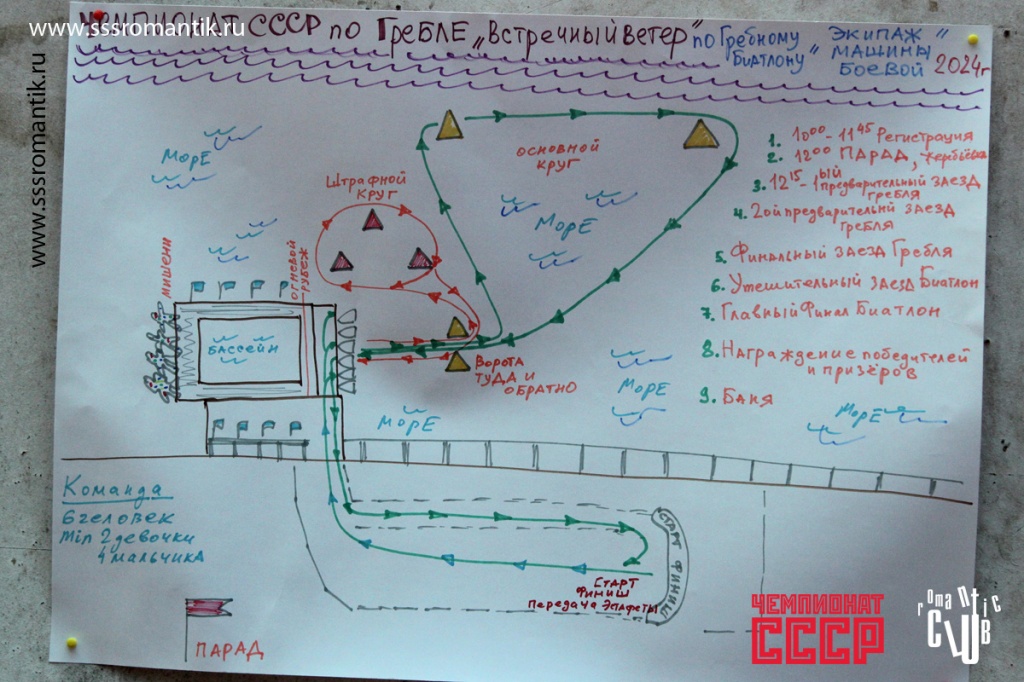 www.sssromantik.ru
www.sssromantik.ru
Чемпионат СССР по Гребле „Встречный ветер" по Гребному Биатлону „Экипаж Машины Боевой" 2024г
1. 10⁰⁰ - 11⁴⁵ Регистрация
2. 12⁰⁰ ПАРАД,
3. 12¹⁵ - 1ый предварительный заезд
гребля
4. 2ой предварительный заезд
гребля
5. Финальный заезд Гребля
6. Утешительный заезд Биатлон
7. Главный Финал Биатлон
8. Награждение победителей
и призёров
9. Баня
Море
Штрафной
круг
основной
круг
Море
мишени
огневой
рубеж
Бассейн
Ворота
туда и
обратно
Море
Море
Море
Команда
6 человек
min 2 девочки
4 мальчика
старт финиш
Старт
финиш
передача эстафеты
ПАРАД
ЧЕМПИОНАТ
СССР
romantic
CLUB